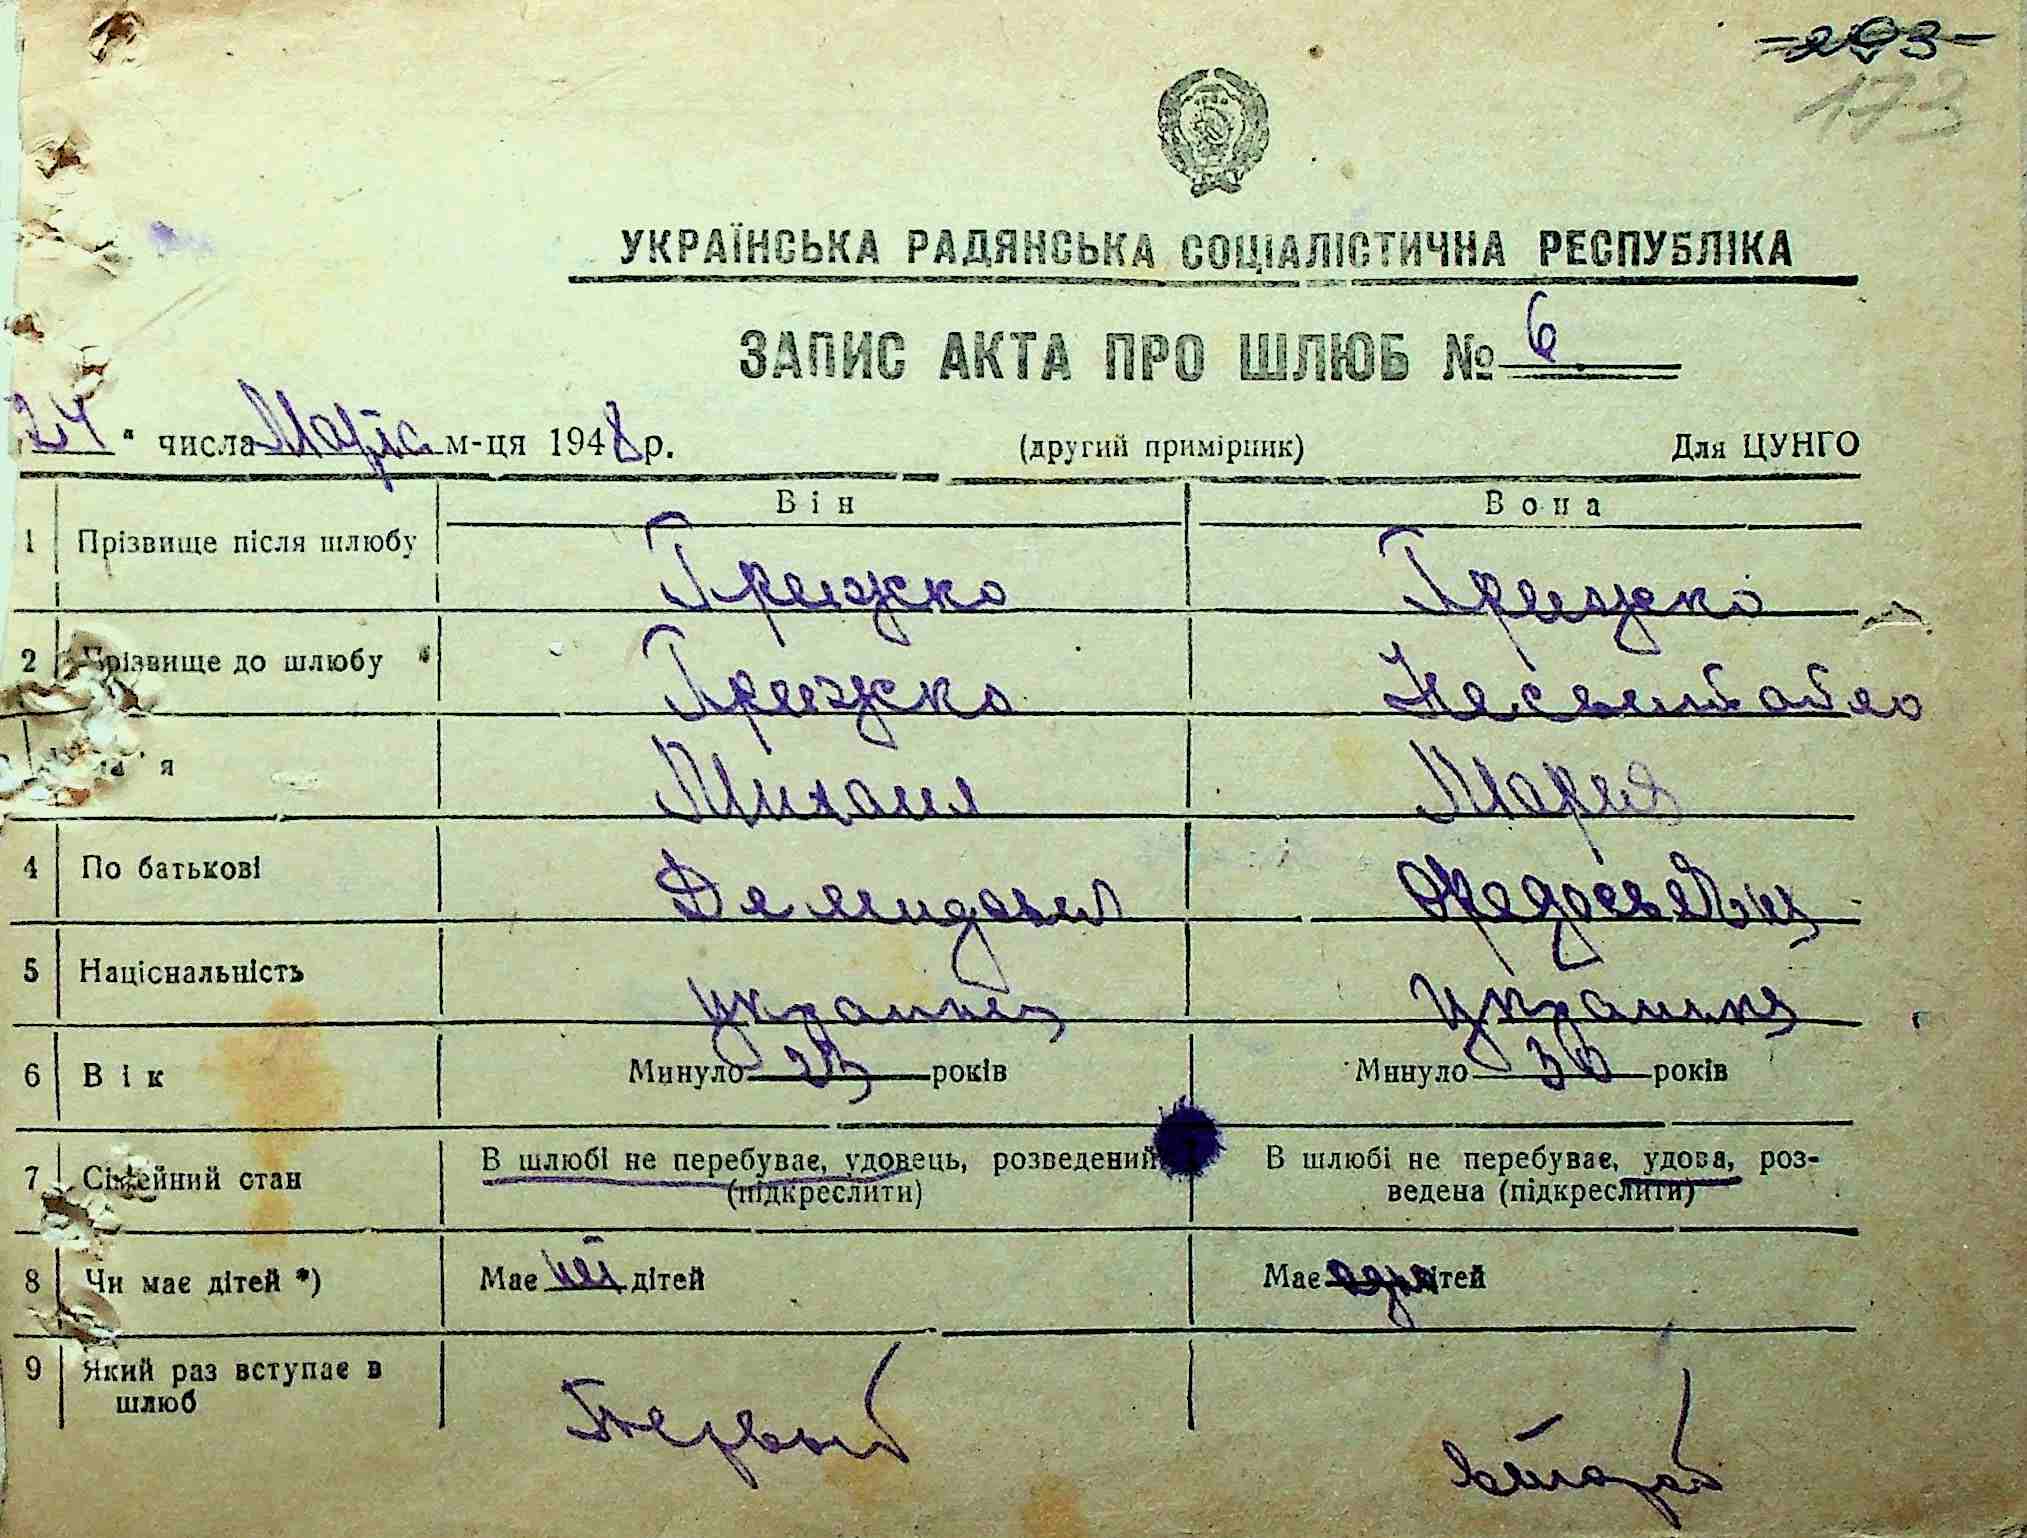 203
173
УКРАЇНСЬКА РАДЯНСЬКА СОЦІАЛІСТИЧНА РЕСПУБЛІКА
ЗАПИС АКТА ПРО ШЛЮБ № 6
24 " числа Марта м-ця 1948 р. (другий примірник) Для ЦУНГО
Він Вона
1 Прізвище після шлюбу Грижко Грижко
2 Прізвище до шлюбу Грижко
м'я Михаил Мария
4 По батькові Демидович Федосьевн
5 Національність украинец украинка
6 Вік Минуло 23 років Минуло 30 років
7 Сімейний стан В шлюбі не перебуває, удовець, розведений (підкреслити) В шлюбі не перебуває, удова, роз-
ведена (підкреслити)
8 Чи має дітей *) Має нет дітей Має одно дітей
9 Який раз вступає в
шлюб Первый второй